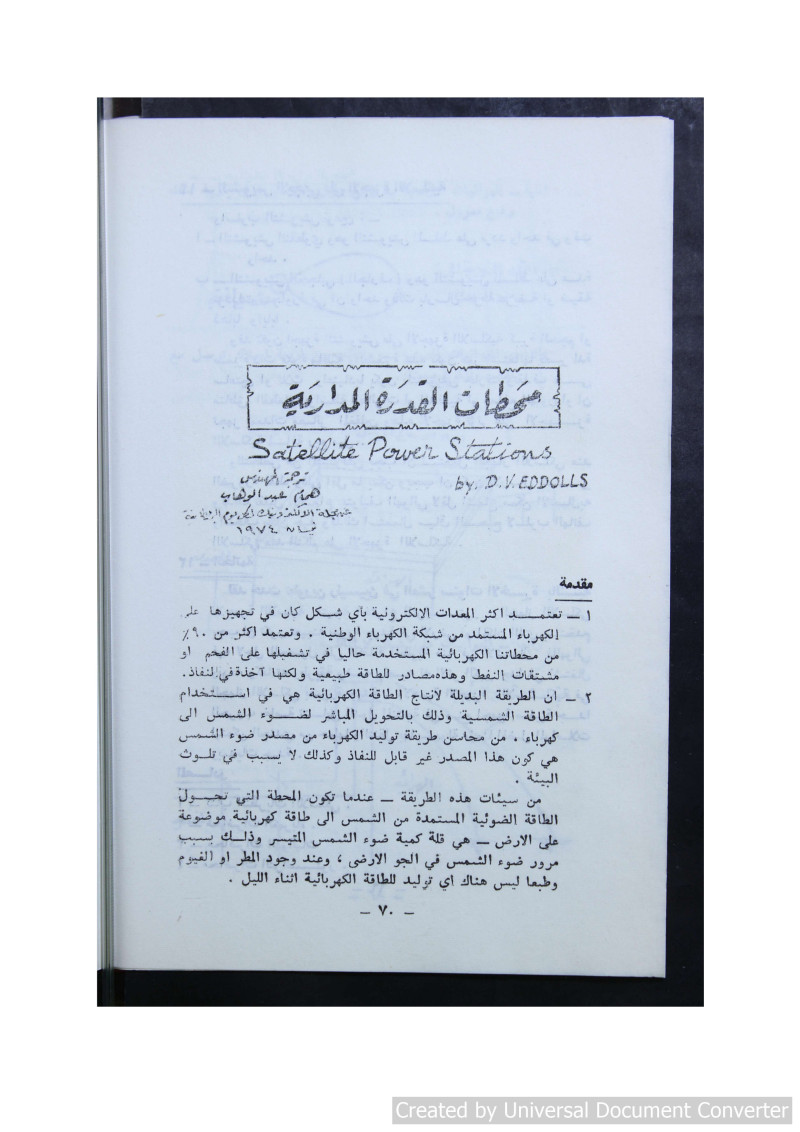 محطات القدرة المدارية
Satellite Power Stations
by. D.V. EDDOLLS
ترجمة المهندس
همام عبد الوهاب
نيسان ١٩٧٤
مقدمة
١ ــ تعتمـــد اكثر المعدات الالكترونية بأي شـــكل كان في تجهيزها على
الكهرباء المستمد من شبكة الكهرباء الوطنية . وتعتمد اكثر من ٩٠٪
من محطاتنا الكهربائية المستخدمة حاليا في تشغيلها على الفحم او
مشتقات النفط وهذه مصادر للطاقة طبيعية ولكنها آخذة في النفاذ.
٢ ــ ان الطريقة البديلة لانتاج الطاقة الكهربائية هي في اســتخدام
الطاقة الشمسية وذلك بالتحويل المباشر لضــوء الشمس الى
كهرباء . من محاسن طريقة توليد الكهرباء من مصدر ضوء الشمس
هي كون هذا المصدر غير قابل للنفاذ وكذلك لا يسبب في تلــوث
البيئة .
من سيئات هذه الطريقة ــ عندما تكون المحطة التي تحــول
الطاقة الضوئية المستمدة من الشمس الى طاقة كهربائية موضوعة
على الارض ــ هي قلة كمية ضوء الشمس المتيسر وذلــك بسبب
مرور ضوء الشمس في الجو الارضي ، وعند وجود المطر او الغيوم
وطبعا ليس هناك اي توليد للطاقة الكهربائية اثناء الليل .
ــ ٧٠ ــ
Created by Universal Document Converter